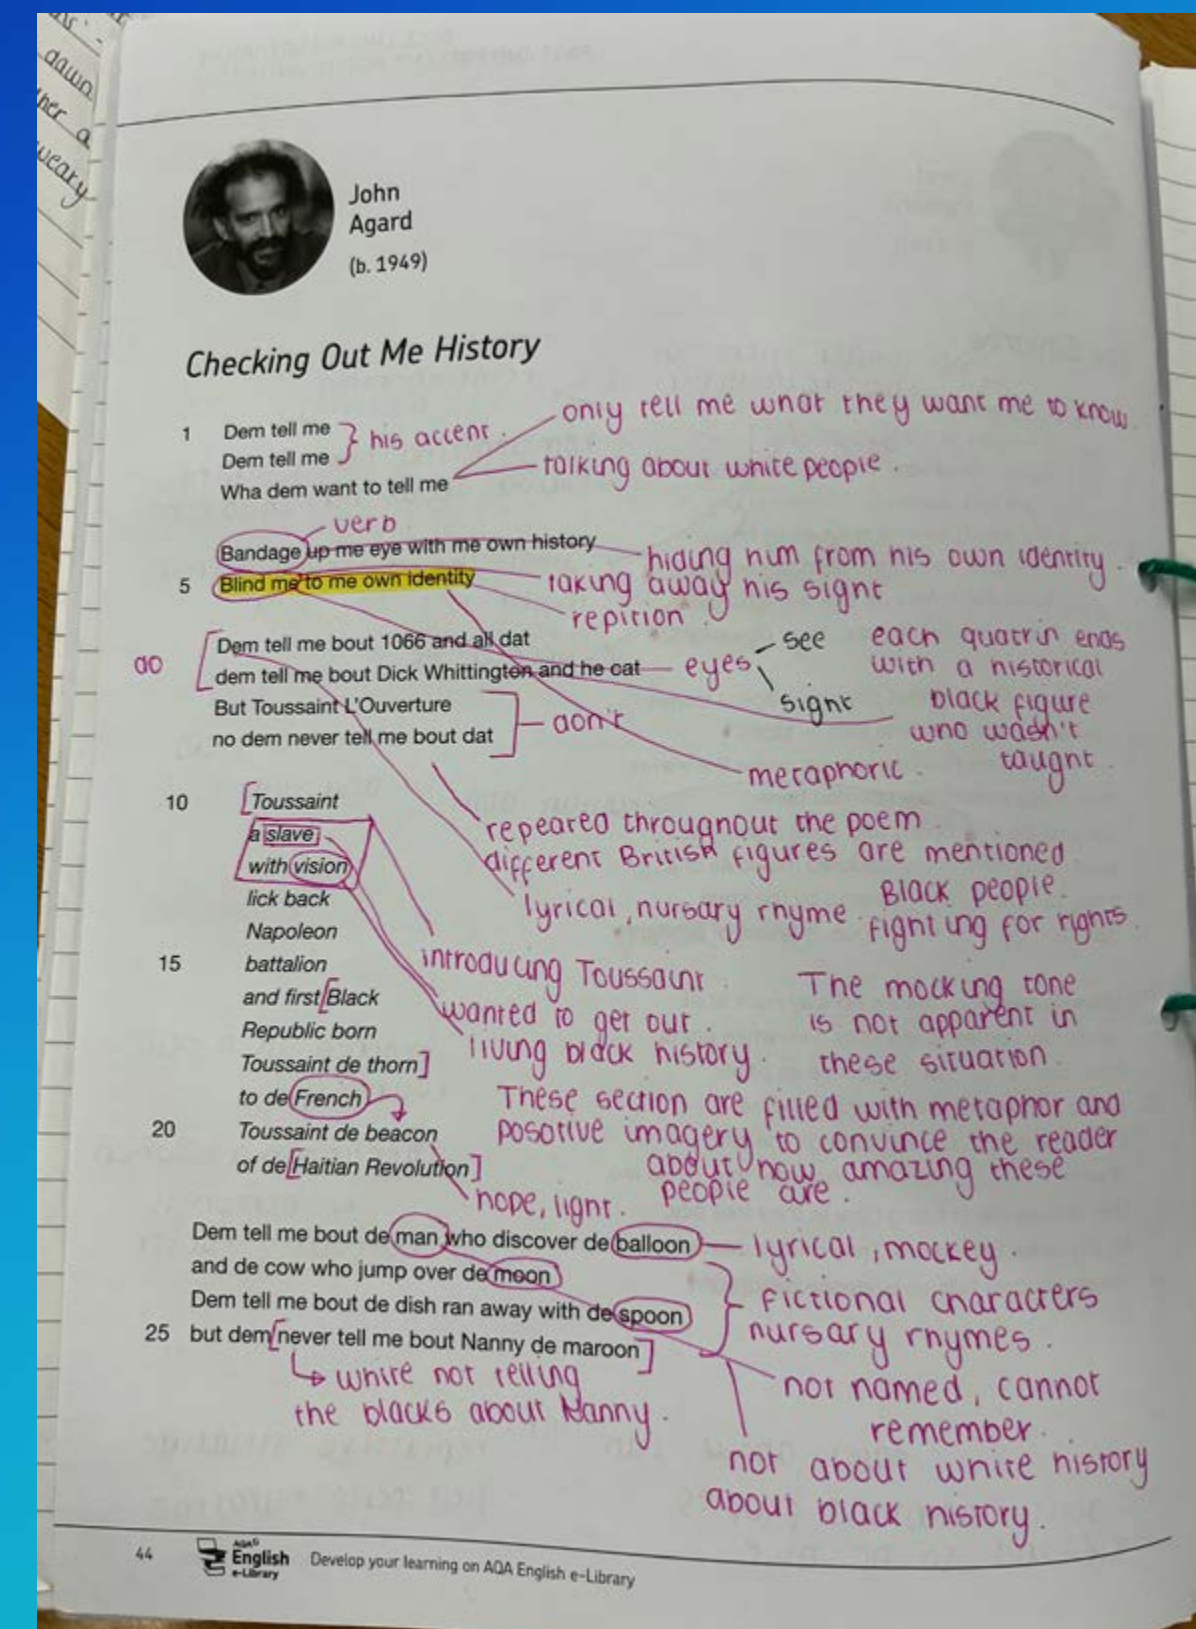 dawn
her a
weary
John
Agard
(b. 1949)
Checking Out Me History
only tell me what they want me to know.
1 Dem tell me
Dem tell me
his accent.
Wha dem want to tell me
talking about white people.
verb
Bandage up me eye with me own history
hiding him from his own identity.
5 Blind me to me own identity
taking away his sight
repition.
Dem tell me bout 1066 and all dat
dem tell me bout Dick Whittington and he cat
do
eyes
see
sight
each quatrin ends
with a historical
black figure
who wasn't
taught.
But Toussaint L'Ouverture
no dem never tell me bout dat
don't
metaphoric.
10 Toussaint
a slave
with vision
lick back
Napoleon
15 battalion
and first Black
Republic born
Toussaint de thorn
to de French
20 Toussaint de beacon
of de Haitian Revolution
repeated throughout the poem
different British figures are mentioned
lyrical, nursary rhyme.
Black people.
fighting for rights.
introducing Toussaint.
wanted to get out.
living black history.
The mocking tone
is not apparent in
these situation.
These section are filled with metaphor and
posotive imagery to convince the reader
about how amazing these
people are.
hope, light.
Dem tell me bout de man who discover de balloon
and de cow who jump over de moon
Dem tell me bout de dish ran away with de spoon
25 but dem never tell me bout Nanny de maroon
lyrical, mockey.
fictional characters
nursary rhymes.
white not telling
the blacks about Nanny.
not named, cannot
remember.
not about white history
about black history.
44 AQA English e-Library Develop your learning on AQA English e-Library